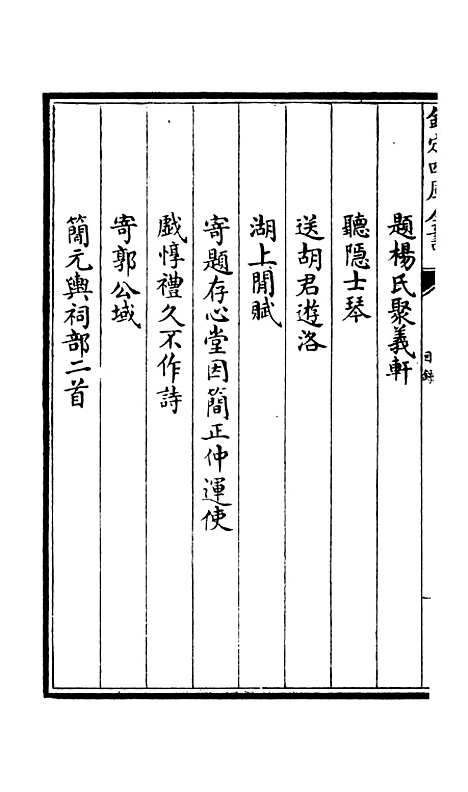 欽定四庫全書
目錄
題楊氏聚義軒
聽隱士琴
送胡君遊洛
湖上閒賦
寄題存心堂因簡正仲運使
戲惇禮久不作詩
寄郭公域
簡元輿祠部二首